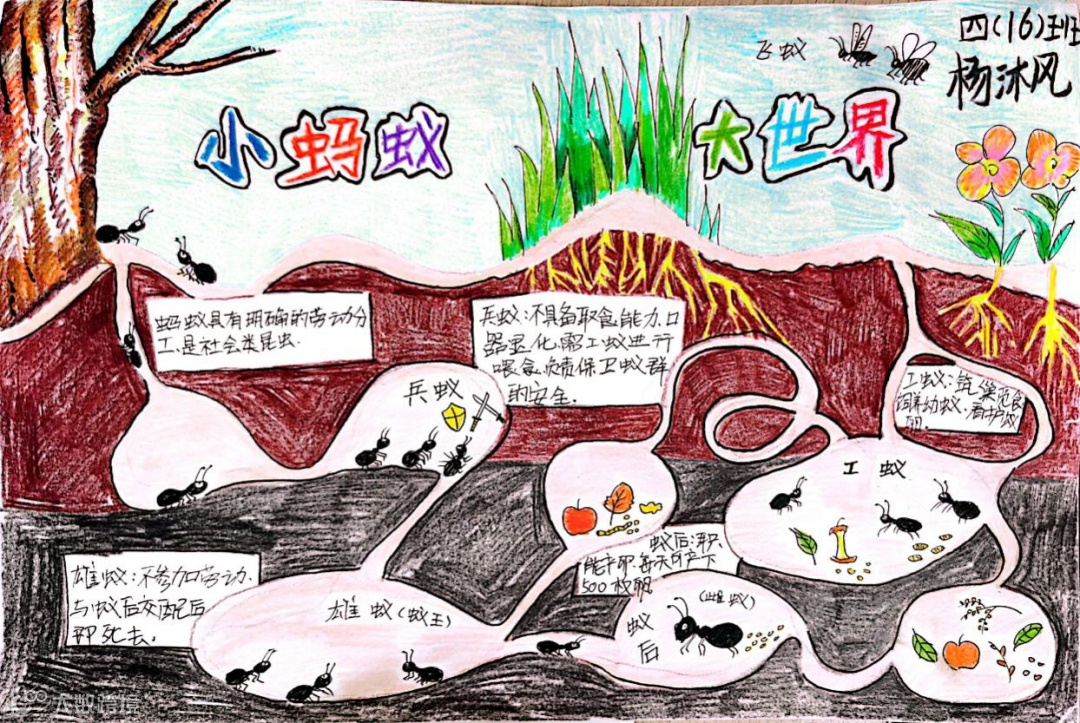 四(16)班
杨沐风
飞蚁
小蚂蚁
大世界
蚂蚁具有明确的劳动分
工,是社会类昆虫.
兵蚁:不具备取食能力,口
器显化,需工蚁进行
喂食,负责保卫蚁群
的安全.
工蚁:筑巢觅食
饲养幼蚁.看护蚁
兵蚁
工蚁
雄蚁:不参加劳动.
与蚁后交配后
即死去.
雄蚁(蚁王)
蚁后:职
能产卵.每天可产下
500枚卵
(雌蚁)
蚁后
大数跨境